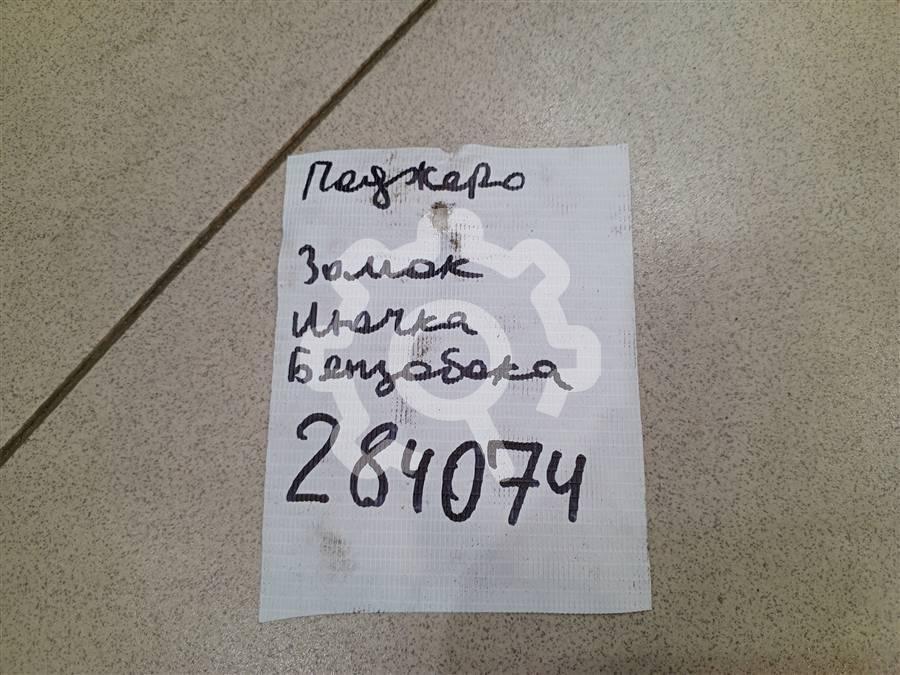 Паджеро
Замок
Лючка
Бензобака
284074